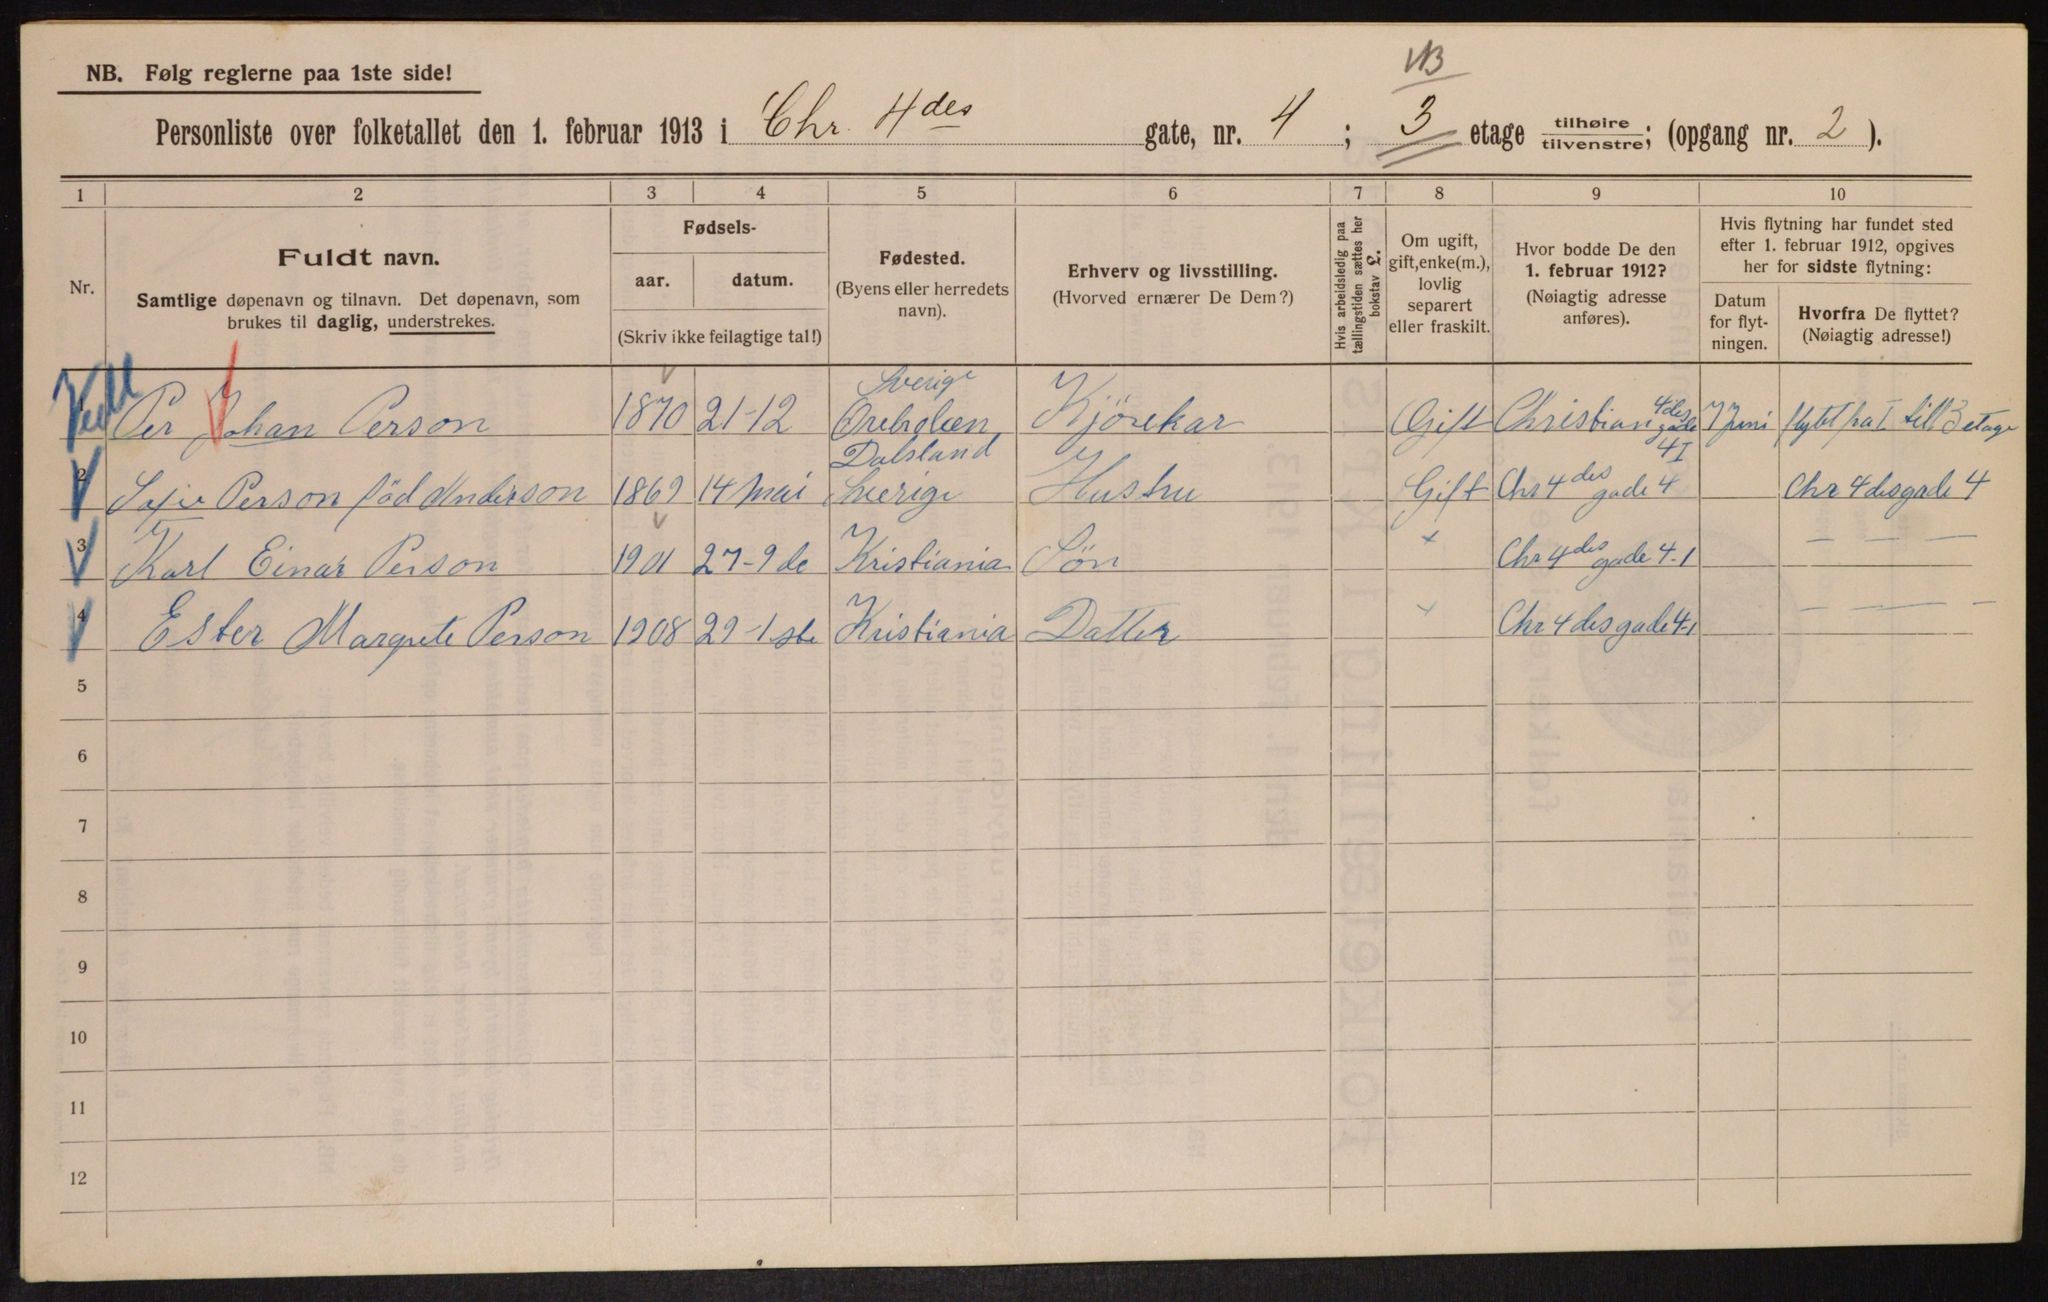 VB
NB. Følg reglerne paa 1ste side!
Personliste over folketallet den 1. februar 1913 i Chr. 4des gate, nr. 4; 3 etage tilhøire/tilvenstre; (opgang nr. 2).
1 2 3 4 5 6 7 8 9 10
Nr.
Fuldt navn.
Samtlige døpenavn og tilnavn. Det døpenavn, som
brukes til daglig, understrekes.
Fødsels-
aar. datum.
(Skriv ikke feilagtige tal!)
Fødested.
(Byens eller herredets
navn).
Erhverv og livsstilling.
(Hvorved ernærer De Dem?)
Hvis arbeidsledig paa
tællingstiden sættes her
bokstav L.
Om ugift,
gift, enke(m.),
lovlig
separert
eller fraskilt.
Hvor bodde De den
1. februar 1912?
(Nøiagtig adresse
anføres).
Hvis flytning har fundet sted
efter 1. februar 1912, opgives
her for sidste flytning:
Datum
for flyt-
ningen.
Hvorfra De flyttet?
(Nøiagtig adresse!)
Per Johan Person 1870 21-12 Sverige Örebrolæn Kjörekar Gift Christian 4des gade 4 I 7 Juni flyttt fra I till 3 etage
2 Sofie Person född Anderson 1869 14 Mai Dalsland Sverige Hustru Gift Chr 4des gade 4 Chr 4des gade 4
3 Karl Einar Person 1901 27-9de Kristiania Sön × Chr 4des gade 4-1 — — —
4 Ester Margrete Person 1908 29-1ste Kristiania Datter × Chr 4des gade 4-1 — — —
5
6
7
8
9
10
11
12